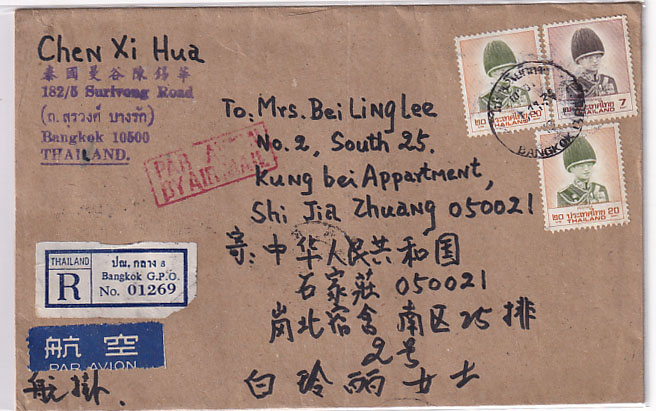 Chen Xi Hua
泰國曼谷陳錫華
182/5 Suriwong Road
(ถ. สุรวงศ์ บางรัก)
Bangkok 10500
THAILAND.
PAR AVION
BY AIR MAIL
๒๐ ประเทศไทย 20
THAILAND
ประเทศไทย 7
THAILAND
BANGKOK
๒๐ ประเทศไทย 20
THAILAND
To: Mrs. Bei Ling Lee
No. 2, South 25.
Kung bei Appartment,
Shi Jia Zhuang 050021
寄: 中华人民共和国
石家莊 050021
岗北宿舍 南区25排
2号
白玲丽女士
THAILAND
R
ปณ. กลาง 8
Bangkok G.P.O.
No. 01269
航空
PAR AVION
航掛.